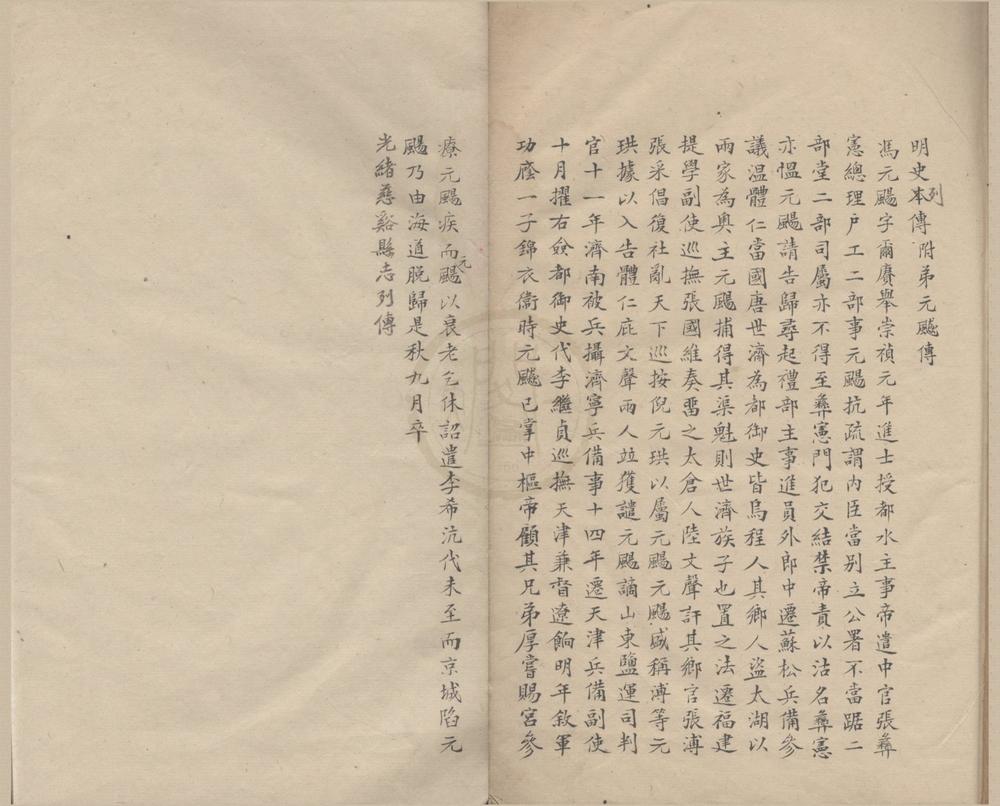 明史列本傳附弟元飈傳
馮元颺字爾賡舉崇禎元年進士授都水主事帝遣中官張彝
憲總理戶工二部事元颺抗疏謂內臣當别立公署不當踞二
部堂二部司屬亦不得至彝憲門犯交結禁帝責以沽名彝憲
亦愠元颺請告歸尋起禮部主事進員外郎中遷蘇松兵備參
議温體仁當國唐世濟為都御史皆烏程人其鄉人盜太湖以
兩家為奥主元颺捕得其渠魁則世濟族子也置之法遷福建
提學副使巡撫張國維奏畱之太倉人陸文聲訐其鄉官張溥
張采倡復社亂天下巡按倪元珙以屬元颺元颺盛稱溥等元
珙據以入告體仁庇文聲兩人竝獲譴元颺謫山東鹽運司判
官十一年濟南被兵攝濟寧兵備事十四年遷天津兵備副使
十月擢右僉都御史代李繼貞巡撫天津兼督遼餉明年敘軍
功廕一子錦衣衞時元飈已掌中樞帝顧其兄弟厚嘗賜宮參
療元颺疾而元颺以衰老乞休詔遣李希沆代未至而京城陷元
颺乃由海道脱歸是秋九月卒
光緒慈谿縣志列傳